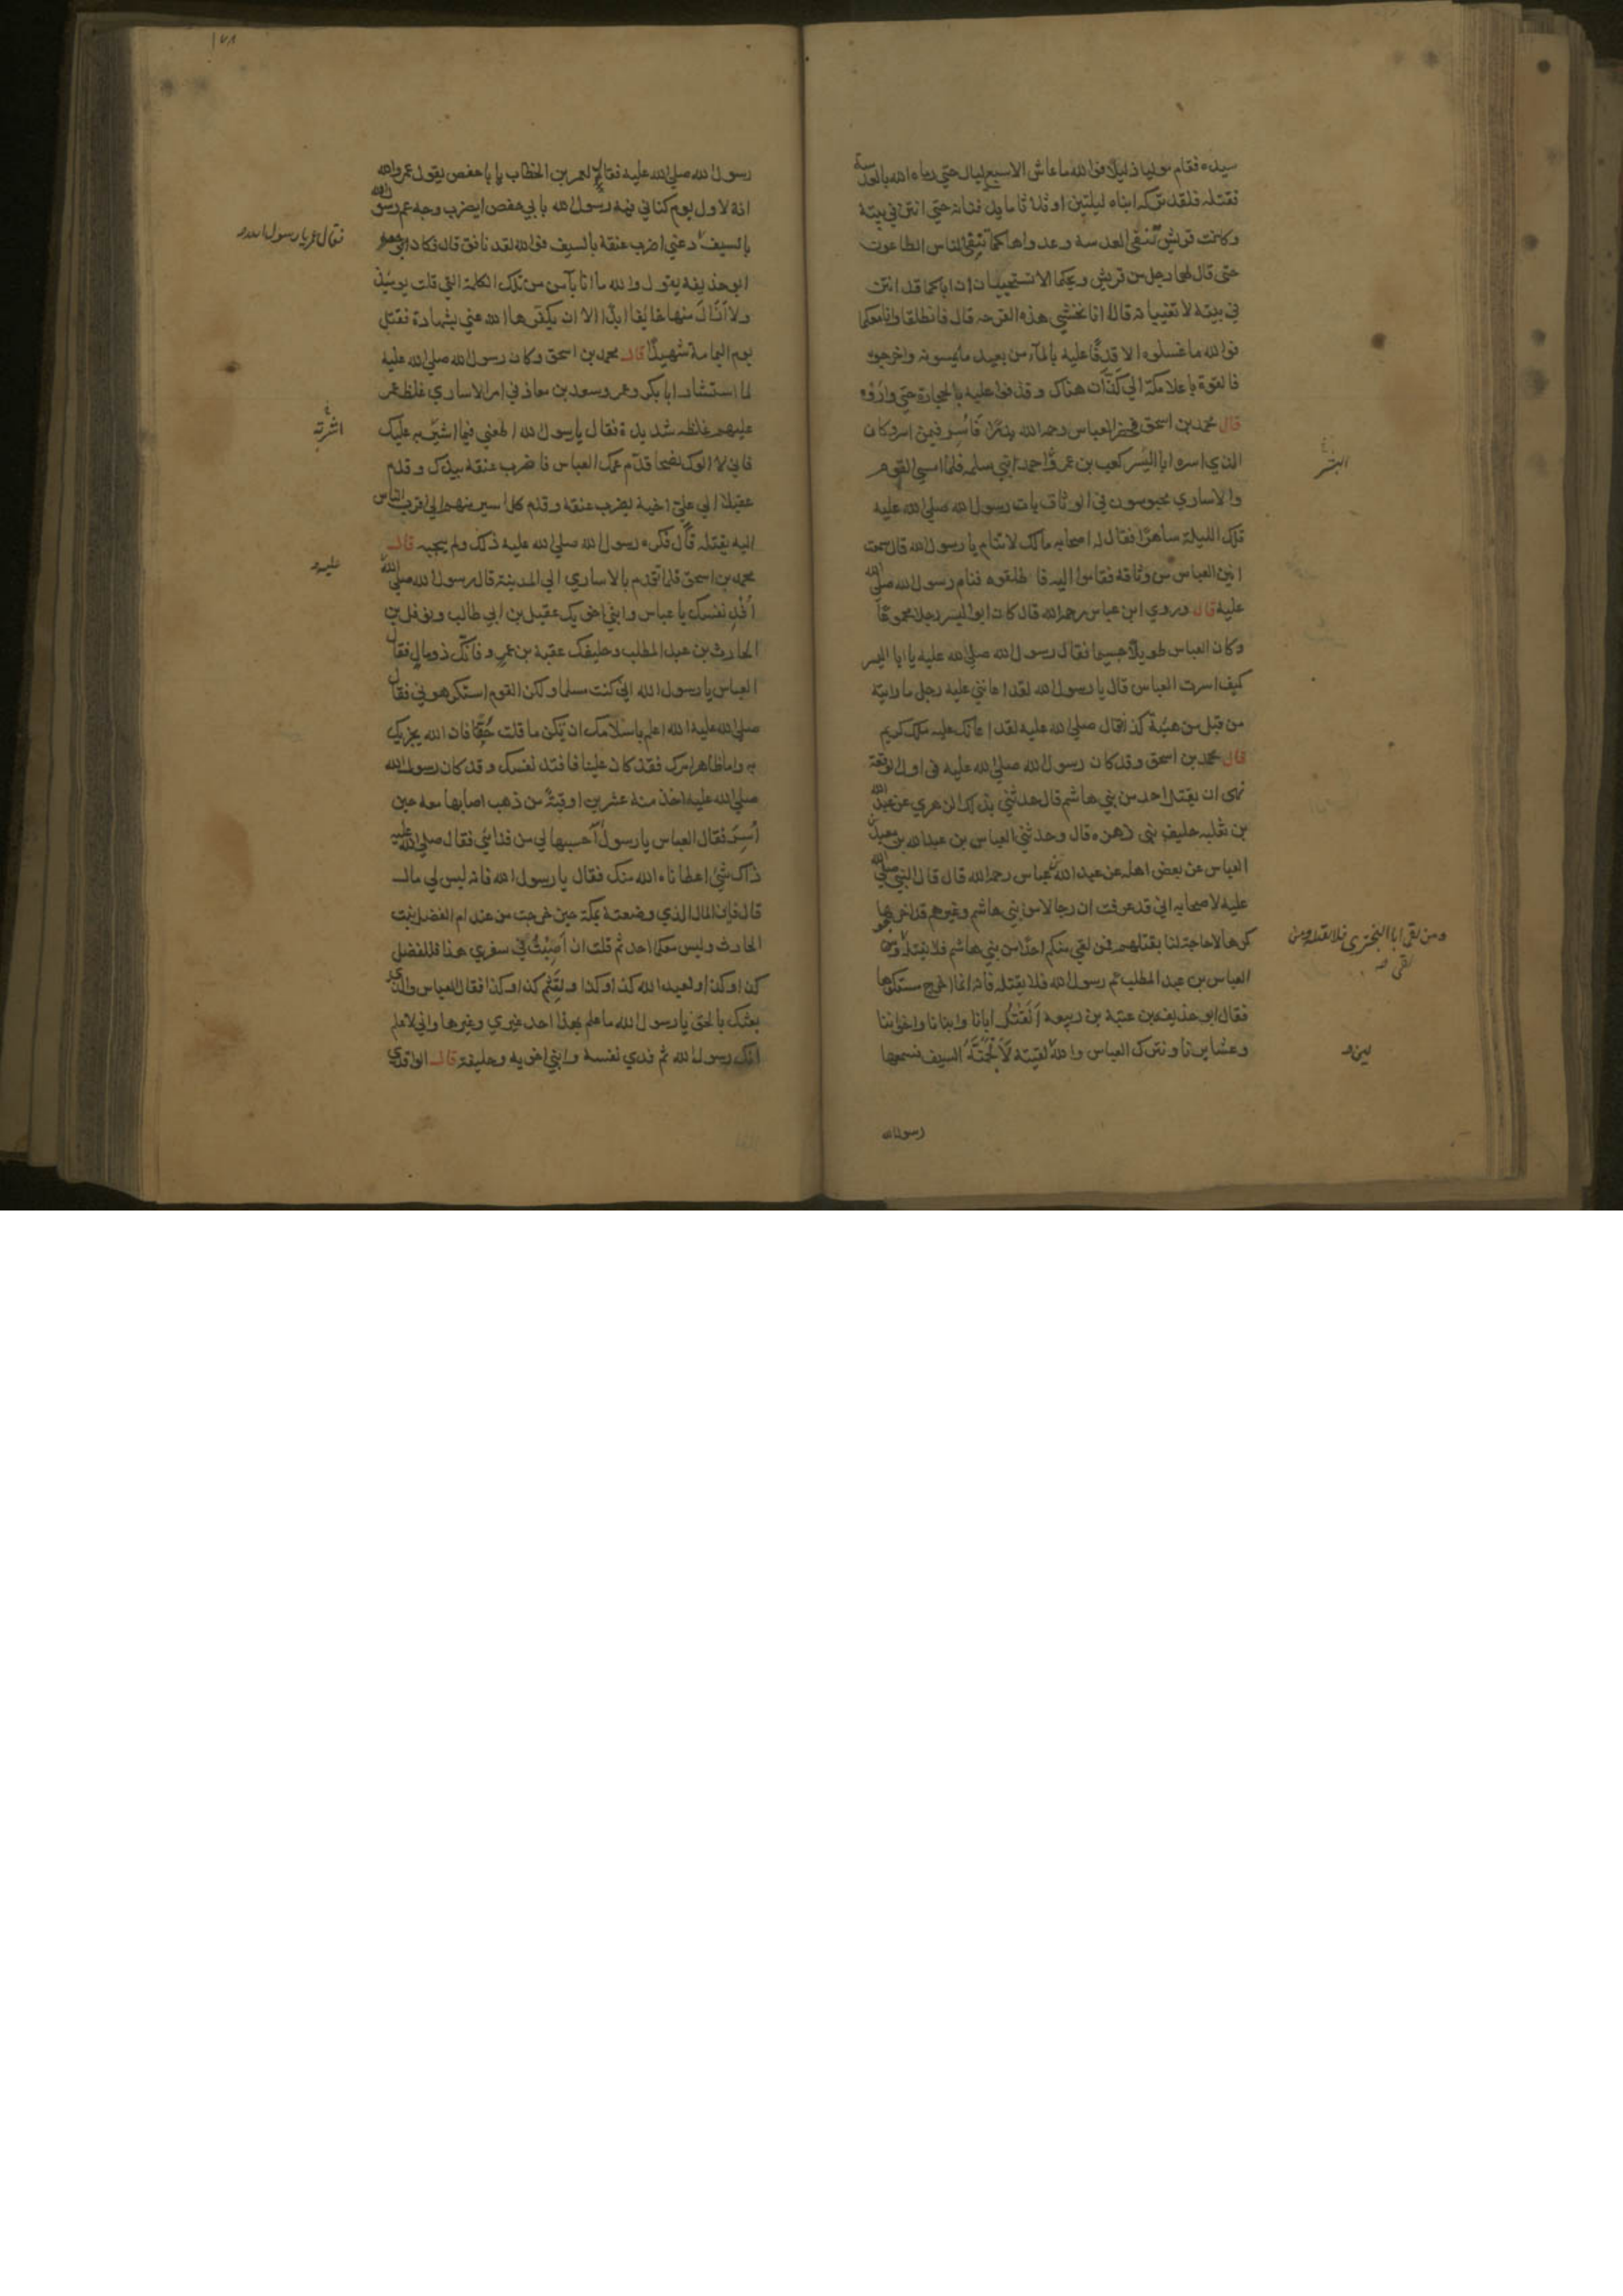 سيده فقام موليا ذليلا فوالله ما عاش الا سبع ليال حتي رماه الله بالعدسة
فقتله فلقد تركه ابناه ليلتين او ثلاثا ما يدفنانه حتي انتن في بيته
وكانت قريش تتقي العدسة وعدواها كما تتقي الناس الطاعون
حتي قال لهما رجل من قريش ويحكما الا تستحييان ان اباكما قد انتن
في بيته لا تغيبانه قالا انا نخشي هذه القرحه قال فانطلقا وانا معكما
فوالله ما غسلوه الا قذفا عليه بالمآء من بعيد ما يمسونه واخرجوه
فالقوه باعلا مكة الي هناك وقذفوا عليه بالحجارة حتي واروه
قال محمد بن اسحق العباس رحمه الله بدرًا فاسر فيمن اسر وكان
الذي اسره ابا اليسر كعب بن عمرو احد بني سلمه فلما امسي القوم
والاساري محبوسون في الوثاق بات رسول الله صلي الله عليه
تلك الليلة ساهرًا فقال له اصحابه مالك لا تنام يا رسول الله قال سمعت
انين العباس من وثاقه فقاموا اليه فاطلقوه فنام رسول الله صلي الله
عليه قال وروي ابن عباس رحمه الله قال كان ابو اليسر رجلا مجموعًا
وكان العباس طويلا جسيما فقال رسول الله صلي الله عليه يا ابا اليسر
كيف اسرت العباس قال يا رسول الله لقد اعانني عليه رجل ما رايته
من قبل من هيئة كذا فقال صلي الله عليه لقد اعانك عليه ملك كريم
قال محمد بن اسحق وقد كان رسول الله صلي الله عليه في اول الوقعة
نهي ان يقتل احد من بني هاشم قال حدثني بذلك الزهري عن عبد الله
بن ثعلبه حليف بني زهره قال وحدثني العباس بن عبد الله بن معبد
العباس عن بعض اهله عن عبد الله عباس رحمه الله قال قال النبي صلي الله
عليه لاصحابه اني قد عرفت ان رجالا من بني هاشم وغيرهم قد اخرجوا
كرها لا حاجة لنا بقتلهم فمن لقي منكم احدًا من بني هاشم فلا يقتله ومن
العباس بن عبد المطلب عم رسول الله فلا يقتله فانه انما اخرج مستكرها
فقال ابو حذيفه بن عتبة بن ربيعه انقتل ابانا وابنانا واخواننا
وعشايرنا ونترك العباس والله لقيته لالجمنه السيف فسمعها
رسول الله
اليسر
ومن لقي ابا البختري فلا يقتله ومن
لقي صه
لين
١٧٨
رسول الله صلي الله عليه فقال لعمر بن الخطاب يا با حفص يقول عمر والله
انه لاول يوم كناني فيه رسول الله بابي حفص ايضرب وجه عم رسول الله
بالسيف دعني اضرب عنقه بالسيف فوالله لقد نافق قال فكان
ابو حذيفه يقول والله ما انا بآمن من تلك الكلمة التي قلت يومئذ
ولا ازال منها خايفا ابدًا الا ان يكفرها الله عني بشهادة فقتل
يوم اليمامة شهيدًا قال محمد بن اسحق وكان رسول الله صلي الله عليه
لما استشار ابا بكر وعمر وسعد بن معاذ في امر الاساري غلظ عمر
عليهم غلظه شديدة فقال يا رسول الله اطعني فيما اشير به عليك
فاني لا الوك نصحا قدّم عمك العباس فاضرب عنقه بيدك وقدم
عقيلا الي علي اخيه يضرب عنقه وقدم كل اسير منهم الي اقرب الناس
اليه يقتله قال فكره رسول الله صلي الله عليه ذلك ولم يعجبه قال
محمد بن اسحق فلما قدم بالاساري الي المدينة قال رسول الله صلي الله
افد نفسك يا عباس وابني اخويك عقيل بن ابي طالب ونوفل بن
الحارث بن عبد المطلب وحليفك عقبة بن عمرو فانك ذو مال فقال
العباس يا رسول الله اني كنت مسلما ولكن القوم استكرهوني فقال
صلي الله عليه الله اعلم باسلامك ان يكن ما قلت حقًا فان الله يجزيك
به واما ظاهر امرك فقد كان علينا فافتد نفسك وقد كان رسول الله
صلي الله عليه اخذ منه عشرين اوقية من ذهب اصابها معه حين
اُسِرَ فقال العباس يا رسول احسبها لي من فدائي فقال صلي الله عليه
ذاك شئ اعطاناه الله منك فقال يا رسول الله فانه ليس لي مال
قال فاين المال الذي وضعته بمكة حين خرجت من عند ام الفضل بنت
الحارث وليس معكما احد ثم قلت ان اُصِبْتُ في سفري هذا فللفضل
كذا وكذا ولعبد الله كذا وكذا ولقثم كذا وكذا فقال العباس والذي
بعثك بالحق يا رسول الله ما علم بهذا احد غيري وغيرها واني لاعلم
انك رسول الله ثم فدي نفسه وابني اخويه وحليفه قال الواقدي
فقال عمر يا رسول الله
اشرته
عليه